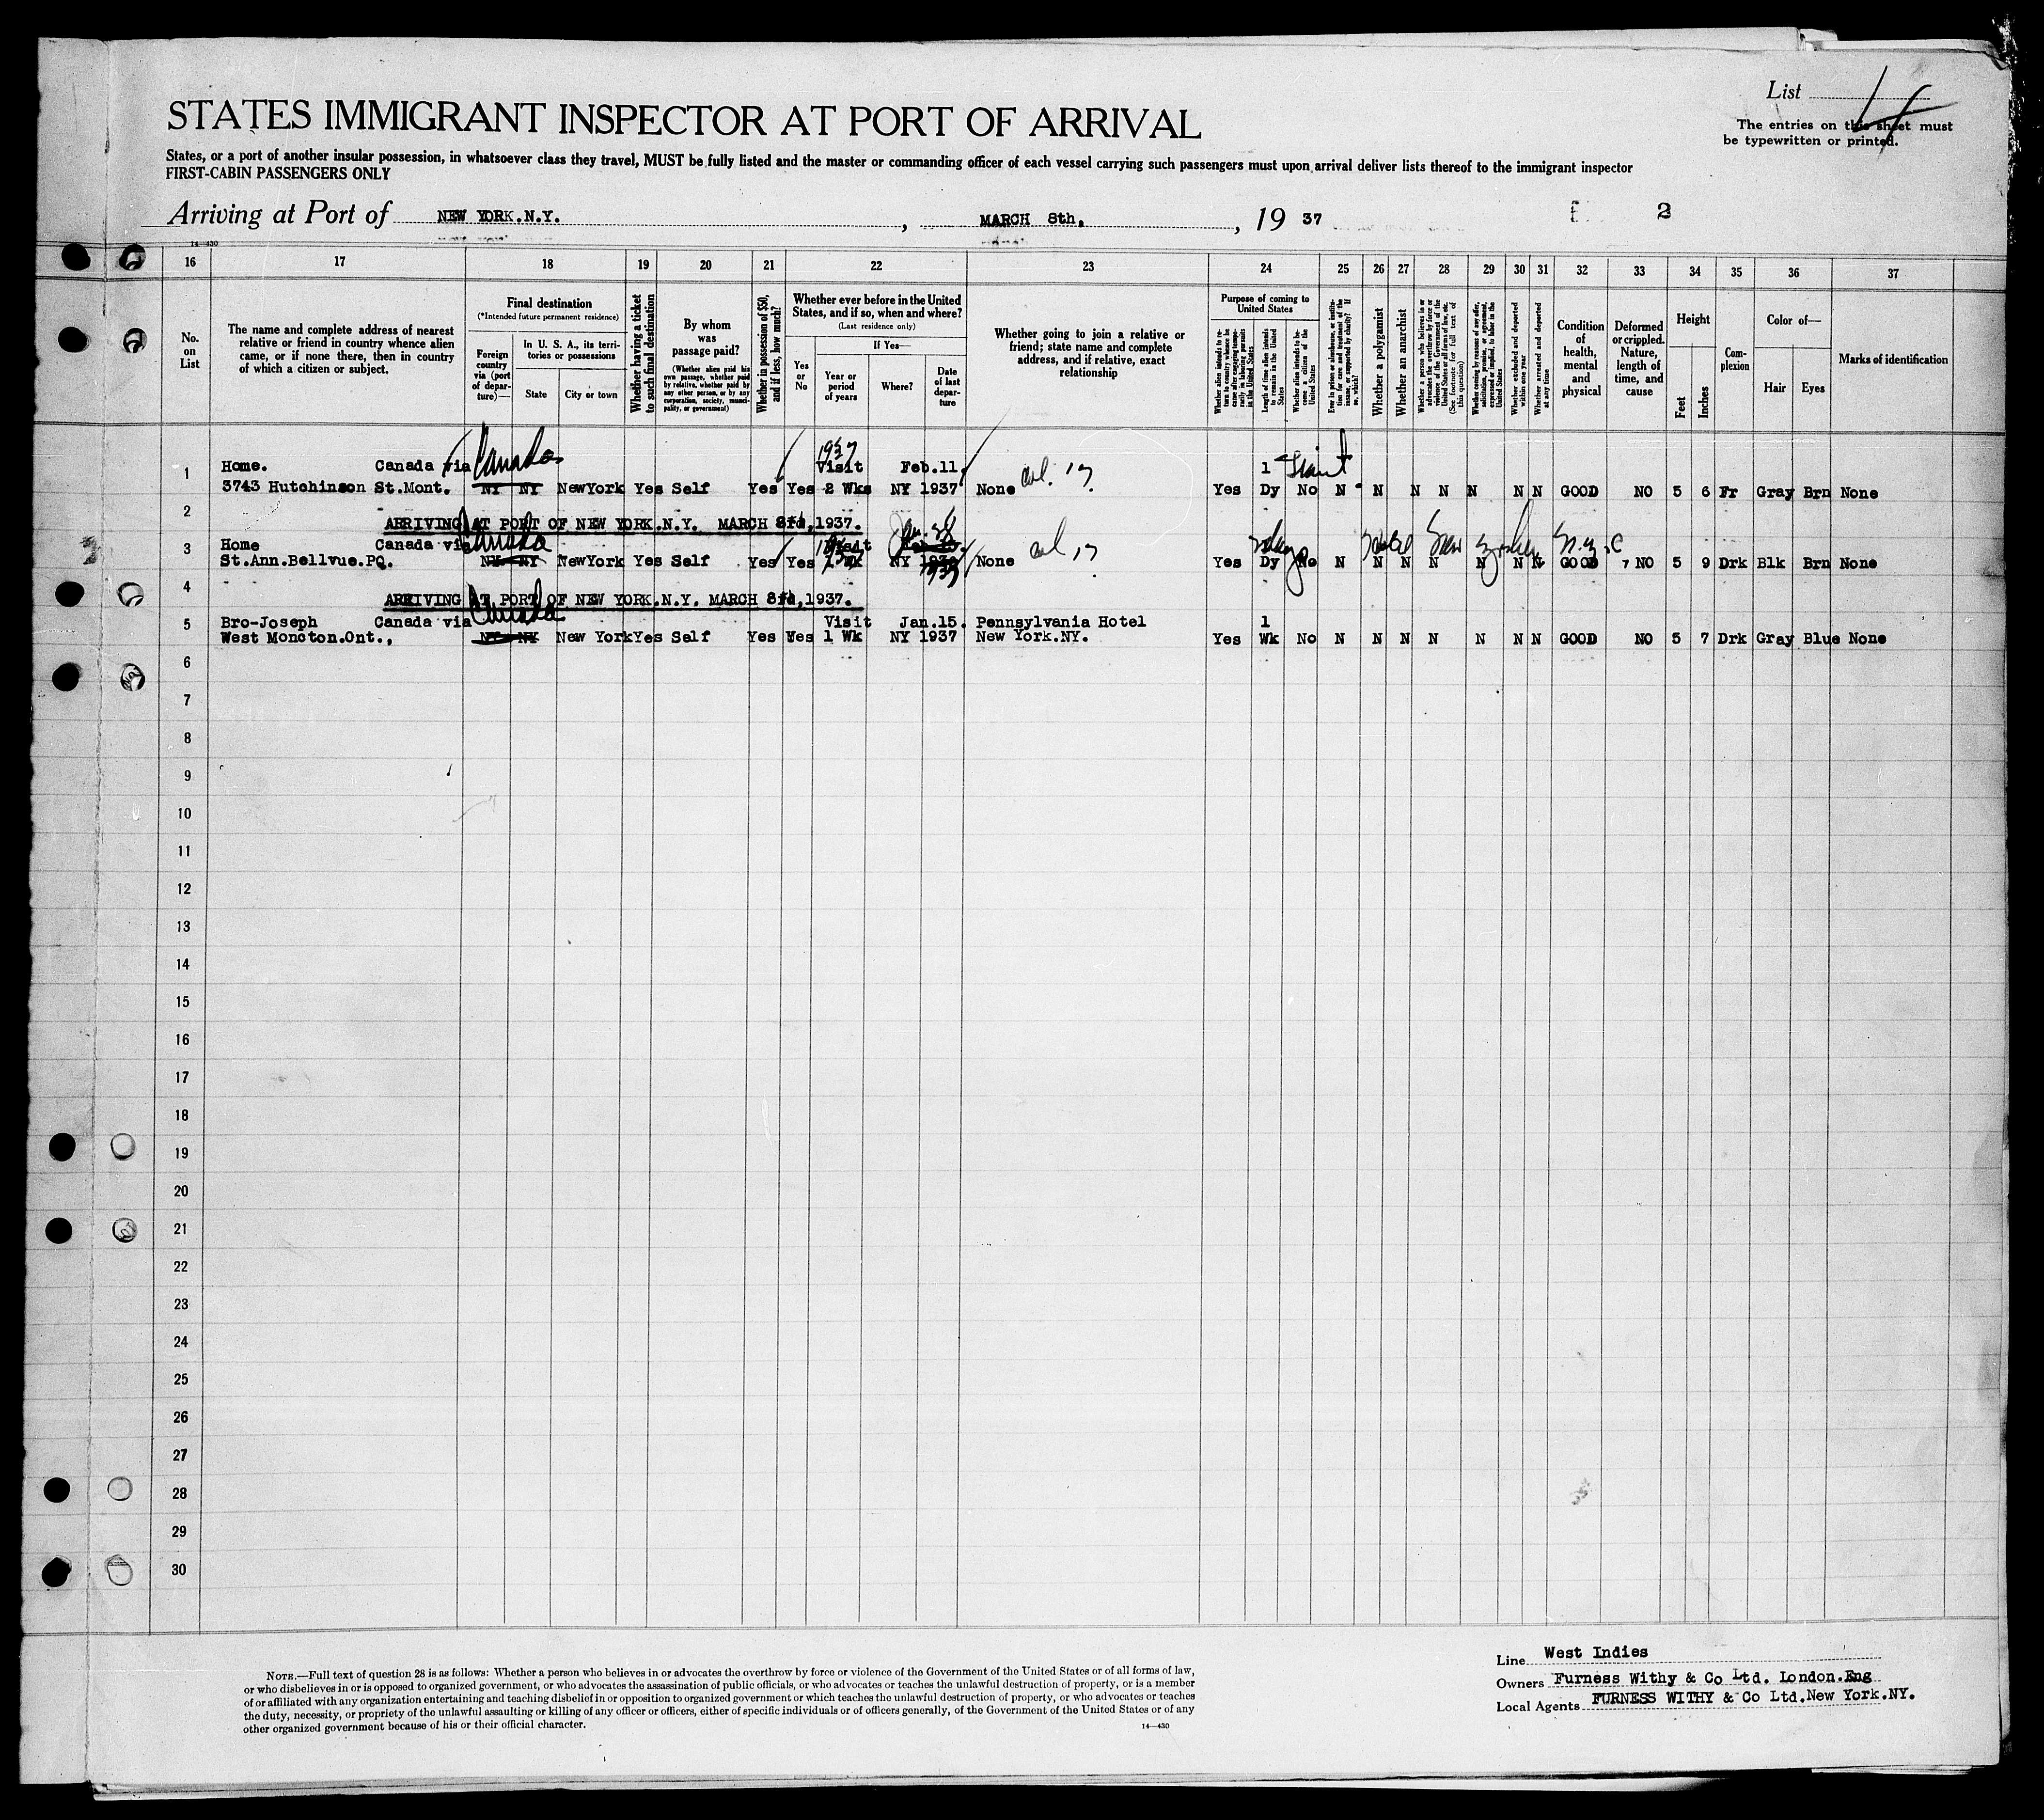 List 4
STATES IMMIGRANT INSPECTOR AT PORT OF ARRIVAL
The entries on this sheet must
be typewritten or printed.
States, or a port of another insular possession, in whatsoever class they travel, MUST be fully listed and the master or commanding officer of each vessel carrying such passengers must upon arrival deliver lists thereof to the immigrant inspector
FIRST-CABIN PASSENGERS ONLY
Arriving at Port of NEW YORK.N.Y., MARCH 8th, 19 37 2
14—430
16 17 18 19 20 21 22 23 24 25 26 27 28 29 30 31 32 33 34 35 36 37
No. on List
The name and complete address of nearest
relative or friend in country whence alien
came, or if none there, then in country
of which a citizen or subject.
Final destination
(*Intended future permanent residence)
Foreign country via (port of departure)—
In U. S. A., its territories or possessions
State
City or town
Whether having a ticket to such final destination
By whom was passage paid?
(Whether alien paid his own passage, whether paid by relative, whether paid by any other person, or by any corporation, society, municipality, or government)
Whether in possession of $50, and if less, how much?
Whether ever before in the United States, and if so, when and where?
(Last residence only)
Yes or No
If Yes—
Year or period of years
Where?
Date of last departure
Whether going to join a relative or
friend; state name and complete
address, and if relative, exact
relationship
Purpose of coming to United States
Whether alien intends to return to country whence he came after engaging temporarily in laboring pursuits in the United States
Length of time alien intends to remain in the United States
Whether alien intends to become a citizen of the United States
Ever in prison or almshouse, or institution for care and treatment of the insane, or supported by charity? If so, which?
Whether a polygamist
Whether an anarchist
Whether a person who believes in or advocates the overthrow by force or violence of the Government of the United States or all forms of law, etc. (See footnote for full text of this question)
Whether coming by reason of any offer, solicitation, promise, or agreement, expressed or implied, to labor in the United States
Whether excluded and deported within one year
Whether arrested and deported at any time
Condition of health, mental and physical
Deformed or crippled. Nature, length of time, and cause
Height
Feet
Inches
Complexion
Color of—
Hair
Eyes
Marks of identification
Home. Canada via Canada 1937 Visit Feb.11. col. 17 1
1 3743 Hutchinson St.Mont. NY NY NewYork Yes Self Yes Yes 2 Wks NY 1937 None Yes Dy No N N N N N N N GOOD NO 5 6 Fr Gray Brn None
2 ARRIVING AT PORT OF NEW YORK.N.Y. MARCH 8th,1937.
3 Home Canada via Canada Visit Jan. 28 col 17
St.Ann.Bellvue.PQ. NY NY NewYork Yes Self Yes Yes 1 Wk NY 1937 None Yes Dy No N N N N N N N GOOD NO 5 9 Drk Blk Brn None
4 ARRIVING AT PORT OF NEW YORK.N.Y. MARCH 8th,1937.
5 Bro-Joseph Canada via Canada Visit Jan.15. Pennsylvania Hotel 1
West Moncton.Ont., NY NY New York Yes Self Yes Yes 1 Wk NY 1937 New York.NY. Yes Wk No N N N N N N N GOOD NO 5 7 Drk Gray Blue None
6
7
8
9
10
11
12
13
14
15
16
17
18
19
20
21
22
23
24
25
26
27
28
29
30
NOTE.—Full text of question 28 is as follows: Whether a person who believes in or advocates the overthrow by force or violence of the Government of the United States or of all forms of law,
or who disbelieves in or is opposed to organized government, or who advocates the assassination of public officials, or who advocates or teaches the unlawful destruction of property, or is a member
of or affiliated with any organization entertaining and teaching disbelief in or opposition to organized government or which teaches the unlawful destruction of property, or who advocates or teaches
the duty, necessity, or propriety of the unlawful assaulting or killing of any officer or officers, either of specific individuals or of officers generally, of the Government of the United States or of any
other organized government because of his or their official character.
14—430
Line West Indies
Owners Furness Withy & Co Ltd. London.Eng
Local Agents FURNESS WITHY & Co Ltd.New York.NY.